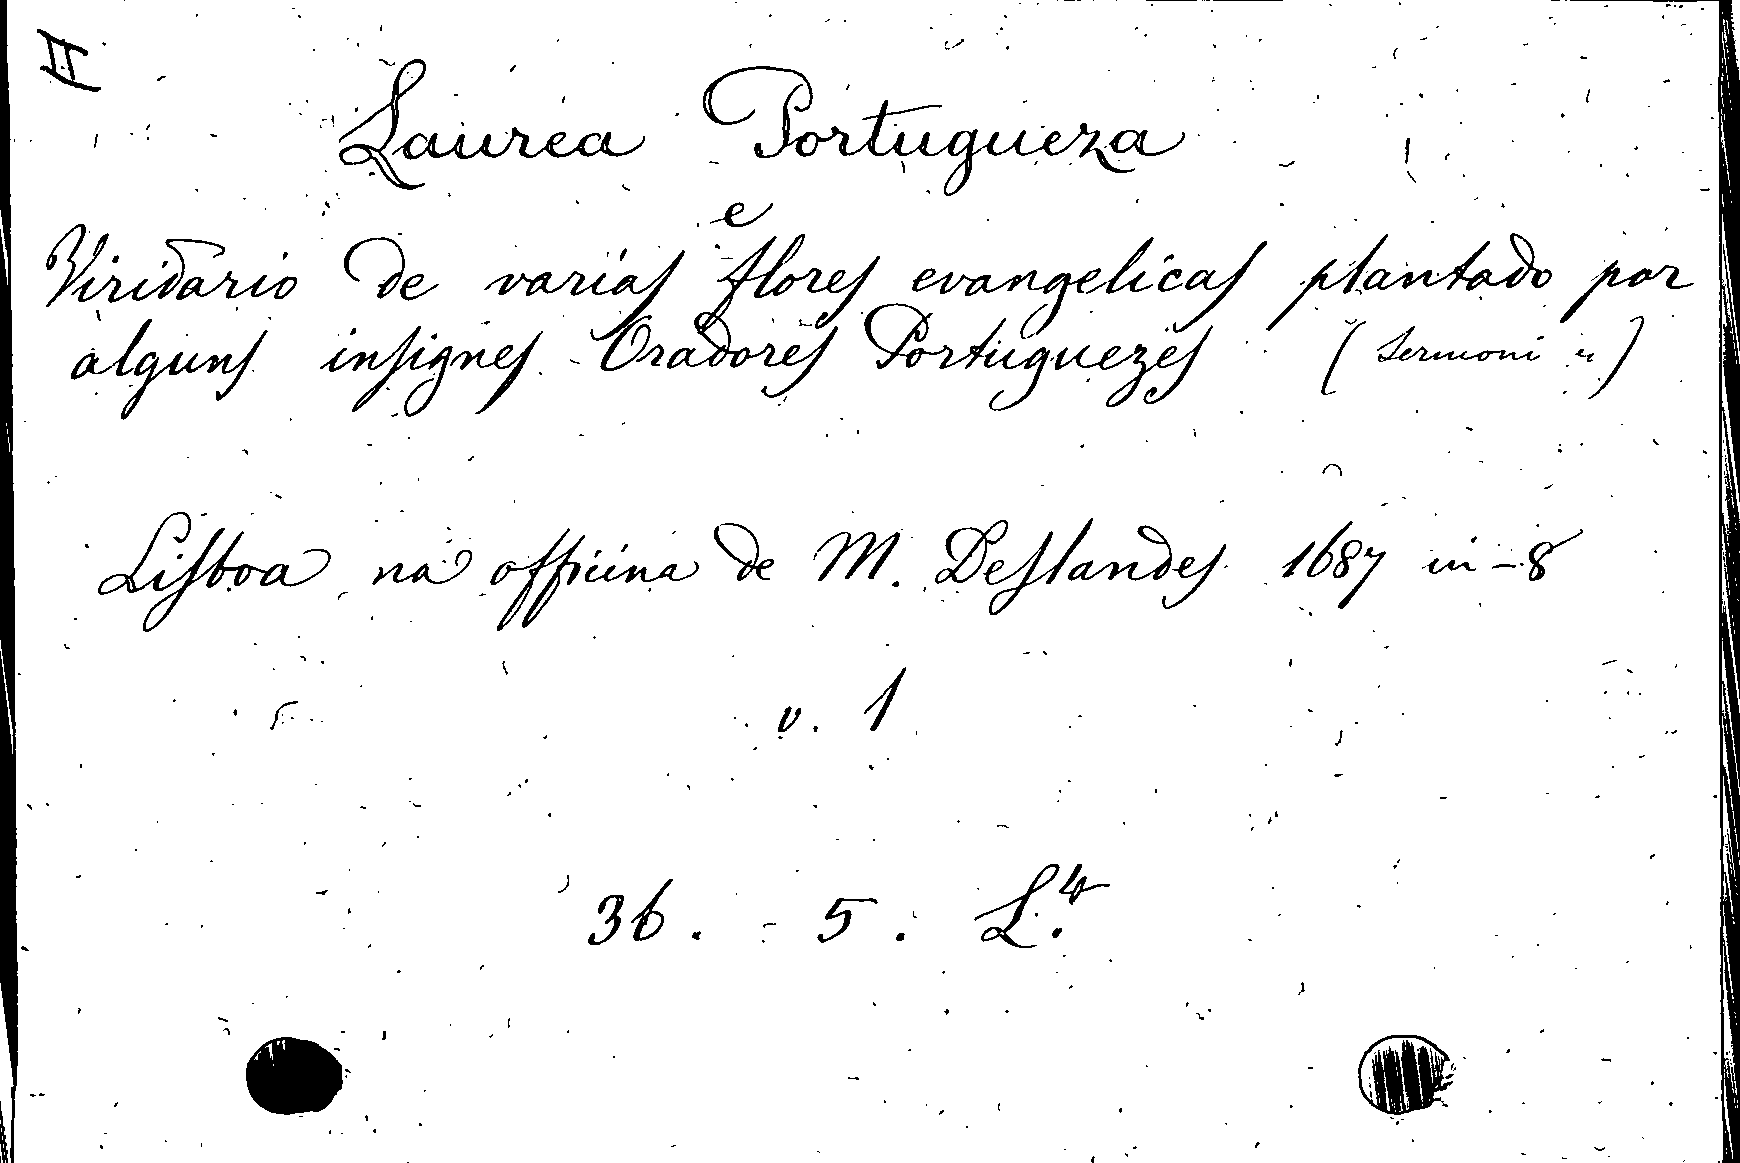 A
Laurea Portugueza
e
Viridario de varias flores evangelicas plantado por
alguns insignes Oradores Portuguezes (Sermoni)
Lisboa na officina de M. Deslandes 1687 in-8
v. 1
36. - 5. L.4